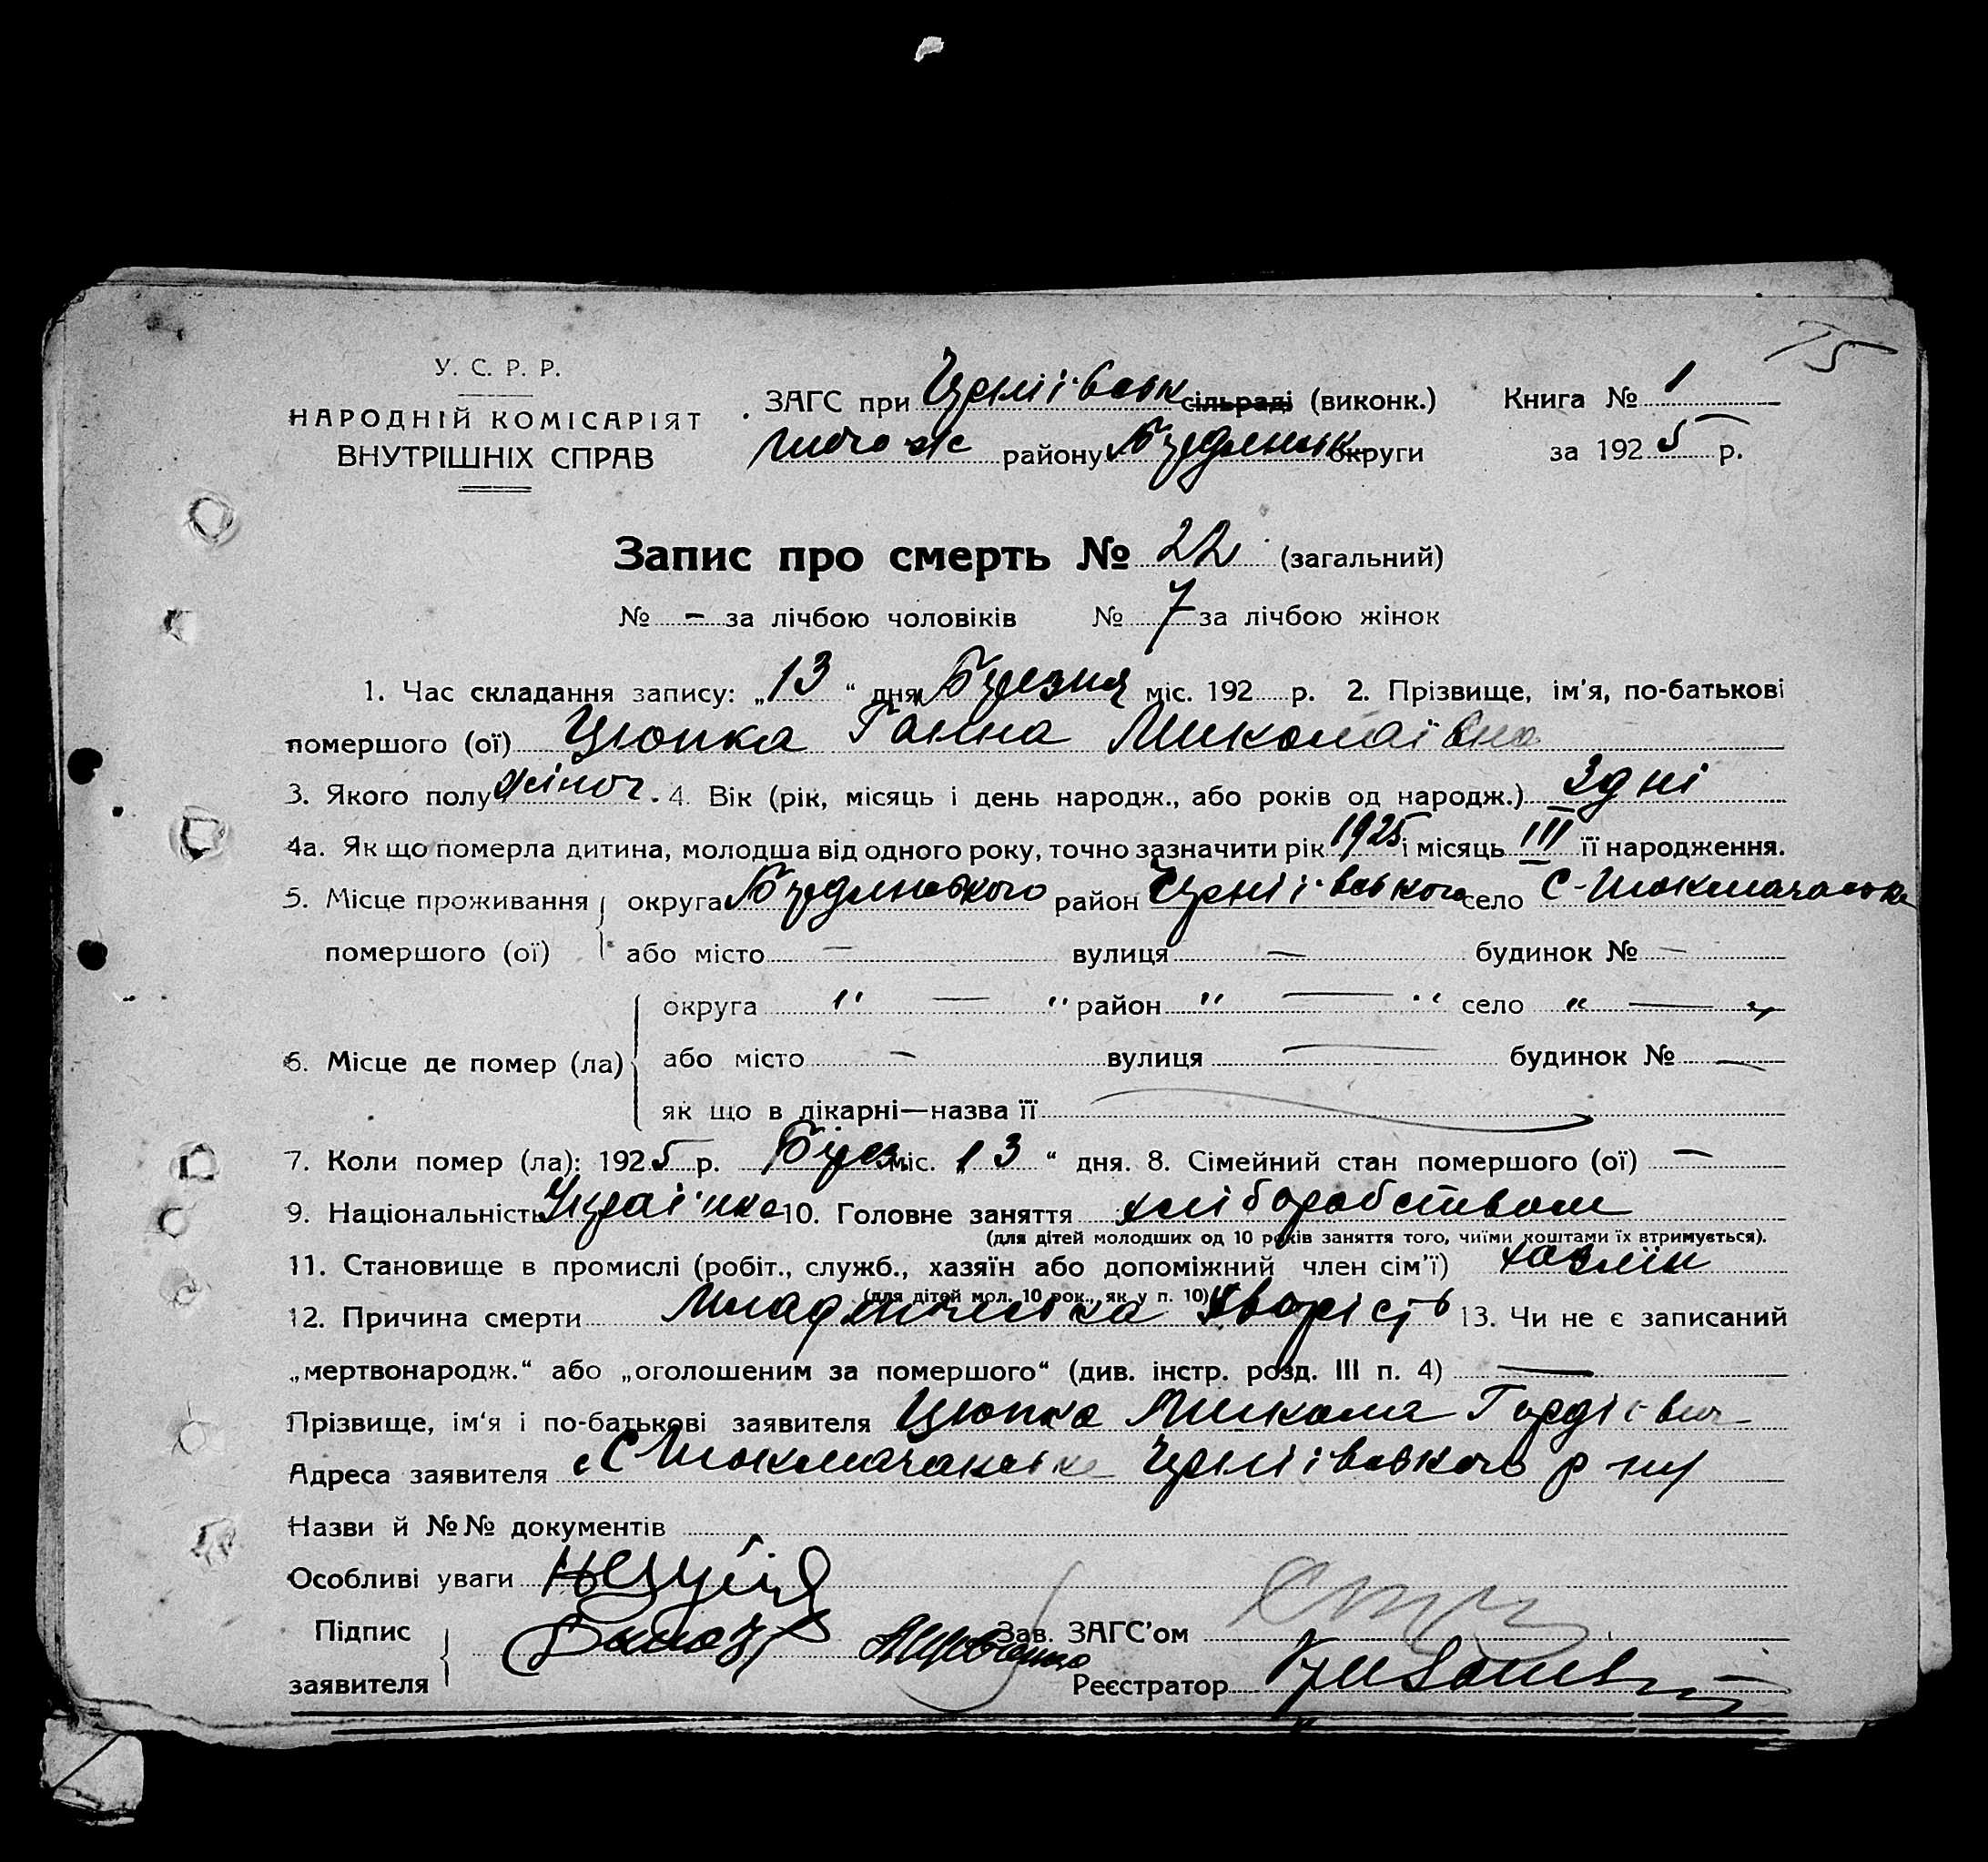 75
У. С. Р. Р.
НАРОДНІЙ КОМІСАРІЯТ
ВНУТРІШНІХ СПРАВ
ЗАГС при сільраді (виконк.) Книга № 1
району округи за 1925 р.
Запис про смерть № 22 (загальний)
№ – за лічбою чоловіків № 7 за лічбою жінок
1. Час складання запису: „13“ дня Березня міс. 192 р. 2. Прізвище, ім'я, по-батькові
помершого (ої) Цюпка Ганна Миколаівна
3. Якого полу жіноч. 4. Вік (рік, місяць і день народж., або років од народж.) 3 дні
4а. Як що померла дитина, молодша від одного року, точно зазначити рік 1925 і місяць III її народження.
5. Місце проживання округа район село С-Токмачанська
помершого (ої) або місто — вулиця — будинок № —
округа " — " район " — " село " — "
6. Місце де помер (ла) або місто — вулиця — будинок № —
як що в лікарні—назва її
7. Коли помер (ла): 1925 р. Берез. міс. 13 “ дня. 8. Сімейний стан помершого (ої) —
9. Національність Украінка 10. Головне заняття хліборобством
(для дітей молодших од 10 років заняття того, чиїми коштами їх втримується).
11. Становище в промислі (робіт., служб., хазяїн або допоміжний член сім'ї) хазяїн
(для дітей мол. 10 рок., як у п. 10)
12. Причина смерти хворість 13. Чи не є записаний
„мертвонародж.“ або „оголошеним за помершого“ (див. інстр. розд. III п. 4) —
Прізвище, ім'я і по-батькові заявителя Цюпка Микола Гордієвич
Адреса заявителя С Токмачанське р-ну
Назви й №№ документів
Особливі уваги
Підпис
заявителя
Зав. ЗАГС'ом
Реєстратор